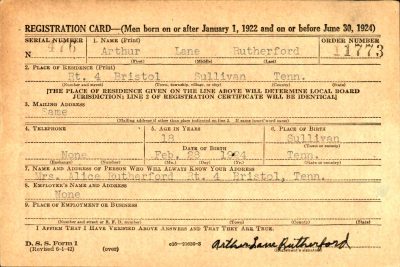 REGISTRATION CARD—(Men born on or after January 1, 1922 and on or before June 30, 1924)
SERIAL NUMBER 1. NAME (Print) ORDER NUMBER
N 476 Arthur Lane Rutherford 11773
(First) (Middle) (Last)
2. PLACE OF RESIDENCE (Print)
Rt. 4 Bristol Sullivan Tenn.
(Number and street) (Town, township, village, or city) (County) (State)
[THE PLACE OF RESIDENCE GIVEN ON THE LINE ABOVE WILL DETERMINE LOCAL BOARD
JURISDICTION; LINE 2 OF REGISTRATION CERTIFICATE WILL BE IDENTICAL]
3. MAILING ADDRESS
Same
(Mailing address if other than place indicated on line 2. If same insert word same)
4. TELEPHONE 5. AGE IN YEARS 6. PLACE OF BIRTH
Sullivan
DATE OF BIRTH (Town or county)
None Feb. 1924 Tenn.
(Exchange) (Number) (Mo.) (Day) (Yr.) (State or country)
7. NAME AND ADDRESS OF PERSON WHO WILL ALWAYS KNOW YOUR ADDRESS
Mrs. Alice Rutherford Rt. 4 Bristol, Tenn.
8. EMPLOYER'S NAME AND ADDRESS
None
9. PLACE OF EMPLOYMENT OR BUSINESS
(Number and street or R. F. D. number) (Town) (County) (State)
I AFFIRM THAT I HAVE VERIFIED ABOVE ANSWERS AND THAT THEY ARE TRUE.
D. S. S. Form 1
(Revised 6-1-42) (over) Arthur Lane Rutherford
(Registrant's signature)